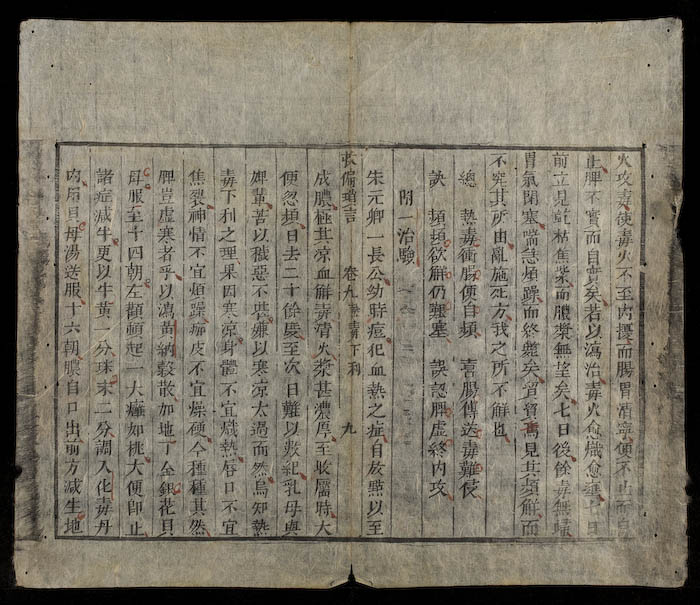 火攻毒使毒火不至內擾而腸胃清寧便不止而自
止脾不實而自實矣若以瀉治毒火愈熾愈
前立見乾枯焦紫而膿漿無望矣七日後餘毒無歸
胃氣閉塞喘急煩躁而終斃矣貿貿焉見其頻解而
不究其所由亂施死方我之所不解也
總 熱毒衝腸便自頻 熹腸傳送毒難侵
訣 頻頻欲解仍艱塞 誤認脾虛終內攻
附一治驗
朱元卿一長公幼時痘犯血熱之症自放點以至
救偏瑣言 卷九 熱毒下利 九
成膿極其涼血解毒清火漿甚濃厚至收靨時大
便忽頻日去二十餘度至次日難以數紀乳母與
婢輩苦以穢惡不堪嫌以寒涼太過而然烏知熱
毒下利之理果因寒涼身體不宜熾熱唇口不宜
焦裂神情不宜煩躁痂皮不宜燥硬今種種其然
脾豈虛寒者乎以瀉黃納穀散加地丁金銀花貝
母服至十四朝左顴頓起一大癰如桃大便卽止
諸症減半更以牛黃一分珠末二分調入化毒丹
內用貝母湯送服十六朝膿自口出前方減生地